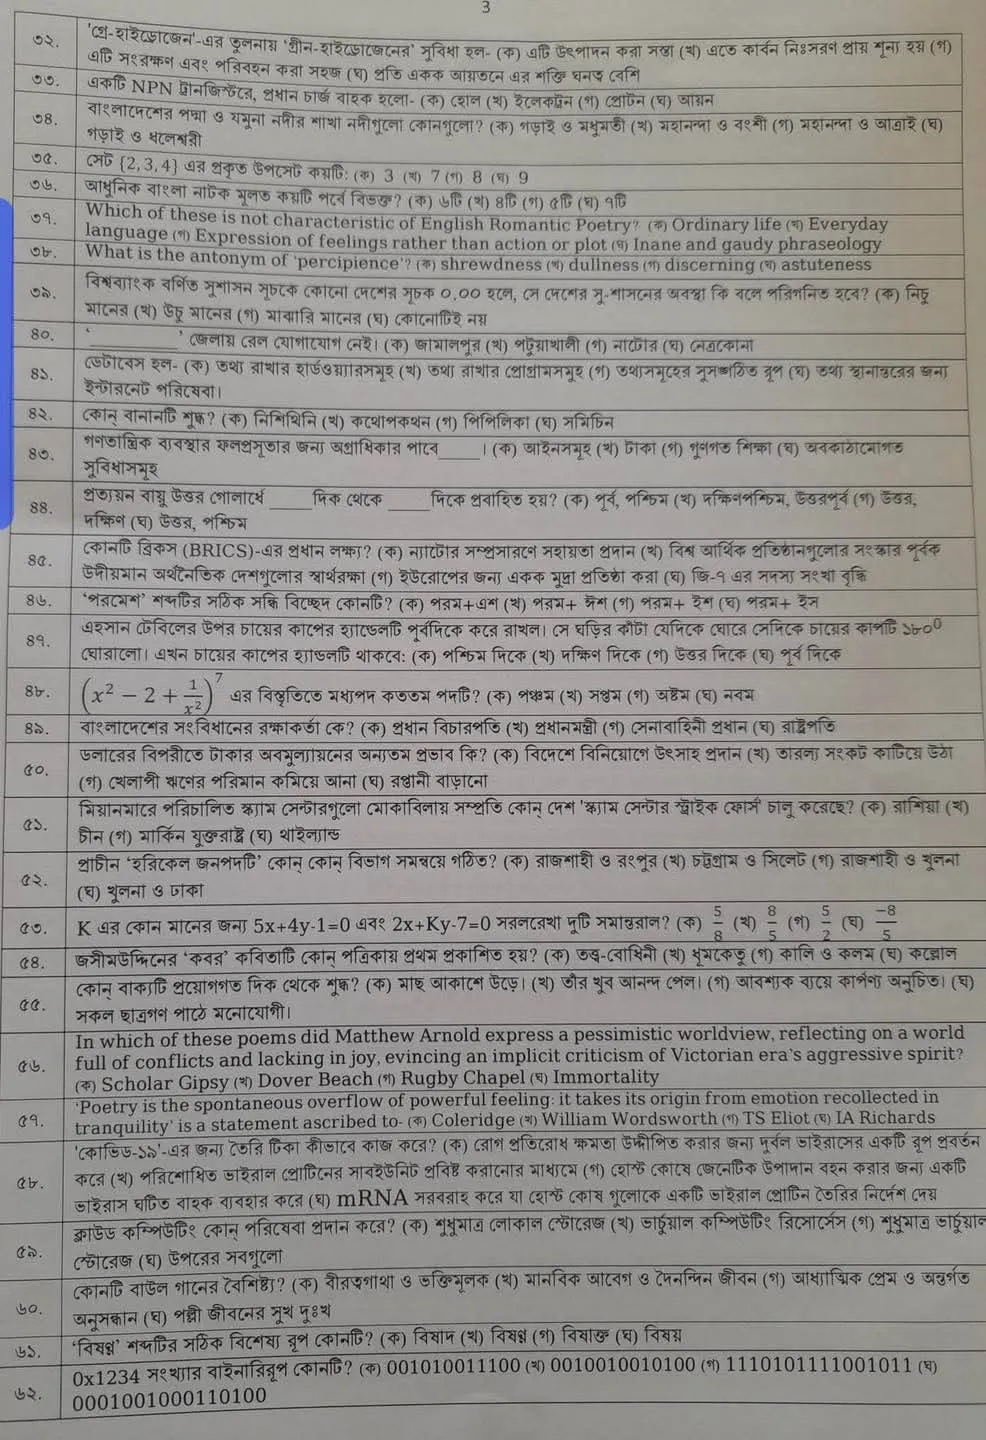 3
৩২. 'গ্রে-হাইড্রোজেন'-এর তুলনায় 'গ্রীন-হাইড্রোজেনের' সুবিধা হল- (ক) এটি উৎপাদন করা সস্তা (খ) এতে কার্বন নিঃসরণ প্রায় শূন্য হয় (গ)
এটি সংরক্ষণ এবং পরিবহন করা সহজ (ঘ) প্রতি একক আয়তনে এর শক্তি ঘনত্ব বেশি
৩৩. একটি NPN ট্রানজিস্টরে, প্রধান চার্জ বাহক হলো- (ক) হোল (খ) ইলেকট্রন (গ) প্রোটন (ঘ) আয়ন
৩৪. বাংলাদেশের পদ্মা ও যমুনা নদীর শাখা নদীগুলো কোনগুলো? (ক) গড়াই ও মধুমতী (খ) মহানন্দা ও বংশী (গ) মহানন্দা ও আত্রাই (ঘ)
গড়াই ও ধলেশ্বরী
৩৫. সেট {2, 3, 4} এর প্রকৃত উপসেট কয়টি: (ক) 3 (খ) 7 (গ) 8 (ঘ) 9
৩৬. আধুনিক বাংলা নাটক মূলত কয়টি পর্বে বিভক্ত? (ক) ৬টি (খ) ৪টি (গ) ৫টি (ঘ) ৭টি
৩৭. Which of these is not characteristic of English Romantic Poetry? (ক) Ordinary life (খ) Everyday
language (গ) Expression of feelings rather than action or plot (ঘ) Inane and gaudy phraseology
৩৮. What is the antonym of 'percipience'? (ক) shrewdness (খ) dullness (গ) discerning (ঘ) astuteness
৩৯. বিশ্বব্যাংক বর্ণিত সুশাসন সূচকে কোনো দেশের সূচক ০.০০ হলে, সে দেশের সু-শাসনের অবস্থা কি বলে পরিগনিত হবে? (ক) নিচু
মানের (খ) উচু মানের (গ) মাঝারি মানের (ঘ) কোনোটিই নয়
৪০. '__________' জেলায় রেল যোগাযোগ নেই। (ক) জামালপুর (খ) পটুয়াখালী (গ) নাটোর (ঘ) নেত্রকোনা
৪১. ডেটাবেস হল- (ক) তথ্য রাখার হার্ডওয়্যারসমূহ (খ) তথ্য রাখার প্রোগ্রামসমূহ (গ) তথ্যসমূহের সুসংগঠিত রূপ (ঘ) তথ্য স্থানান্তরের জন্য
ইন্টারনেট পরিষেবা।
৪২. কোন্ বানানটি শুদ্ধ? (ক) নিশিথিনি (খ) কথোপকথন (গ) পিপিলিকা (ঘ) সমিচিন
৪৩. গণতান্ত্রিক ব্যবস্থার ফলপ্রসূতার জন্য অগ্রাধিকার পাবে_____। (ক) আইনসমূহ (খ) টাকা (গ) গুণগত শিক্ষা (ঘ) অবকাঠামোগত
সুবিধাসমূহ
৪৪. প্রত্যয়ন বায়ু উত্তর গোলার্ধে _____দিক থেকে _____দিকে প্রবাহিত হয়? (ক) পূর্ব, পশ্চিম (খ) দক্ষিণপশ্চিম, উত্তরপূর্ব (গ) উত্তর,
দক্ষিণ (ঘ) উত্তর, পশ্চিম
৪৫. কোনটি ব্রিকস (BRICS)-এর প্রধান লক্ষ্য? (ক) ন্যাটোর সম্প্রসারণে সহায়তা প্রদান (খ) বিশ্ব আর্থিক প্রতিষ্ঠানগুলোর সংস্কার পূর্বক
উদীয়মান অর্থনৈতিক দেশগুলোর স্বার্থরক্ষা (গ) ইউরোপের জন্য একক মুদ্রা প্রতিষ্ঠা করা (ঘ) জি-৭ এর সদস্য সংখ্যা বৃদ্ধি
৪৬. 'পরমেশ' শব্দটির সঠিক সন্ধি বিচ্ছেদ কোনটি? (ক) পরম+এশ (খ) পরম+ ঈশ (গ) পরম+ ইশ (ঘ) পরম+ ইস
৪৭. এহসান টেবিলের উপর চায়ের কাপের হ্যান্ডেলটি পূর্বদিকে করে রাখল। সে ঘড়ির কাঁটা যেদিকে ঘোরে সেদিকে চায়ের কাপটি ১৮০⁰
ঘোরালো। এখন চায়ের কাপের হ্যান্ডলটি থাকবে: (ক) পশ্চিম দিকে (খ) দক্ষিণ দিকে (গ) উত্তর দিকে (ঘ) পূর্ব দিকে
৪৮. (x² − 2 + 1/x²)⁷ এর বিস্তৃতিতে মধ্যপদ কততম পদটি? (ক) পঞ্চম (খ) সপ্তম (গ) অষ্টম (ঘ) নবম
৪৯. বাংলাদেশের সংবিধানের রক্ষাকর্তা কে? (ক) প্রধান বিচারপতি (খ) প্রধানমন্ত্রী (গ) সেনাবাহিনী প্রধান (ঘ) রাষ্ট্রপতি
৫০. ডলারের বিপরীতে টাকার অবমূল্যায়নের অন্যতম প্রভাব কি? (ক) বিদেশে বিনিয়োগে উৎসাহ প্রদান (খ) তারল্য সংকট কাটিয়ে উঠা
(গ) খেলাপী ঋণের পরিমান কমিয়ে আনা (ঘ) রপ্তানী বাড়ানো
৫১. মিয়ানমারে পরিচালিত স্ক্যাম সেন্টারগুলো মোকাবিলায় সম্প্রতি কোন্ দেশ 'স্ক্যাম সেন্টার স্ট্রাইক ফোর্স' চালু করেছে? (ক) রাশিয়া (খ)
চীন (গ) মার্কিন যুক্তরাষ্ট্র (ঘ) থাইল্যান্ড
৫২. প্রাচীন 'হরিকেল জনপদটি' কোন্ কোন্ বিভাগ সমন্বয়ে গঠিত? (ক) রাজশাহী ও রংপুর (খ) চট্টগ্রাম ও সিলেট (গ) রাজশাহী ও খুলনা
(ঘ) খুলনা ও ঢাকা
৫৩. K এর কোন মানের জন্য 5x+4y-1=0 এবং 2x+Ky-7=0 সরলরেখা দুটি সমান্তরাল? (ক) 5/8 (খ) 8/5 (গ) 5/2 (ঘ) −8/5
৫৪. জসীমউদ্দিনের 'কবর' কবিতাটি কোন্ পত্রিকায় প্রথম প্রকাশিত হয়? (ক) তত্ত্ব-বোধিনী (খ) ধূমকেতু (গ) কালি ও কলম (ঘ) কল্লোল
৫৫. কোন্ বাক্যটি প্রয়োগগত দিক থেকে শুদ্ধ? (ক) মাছ আকাশে উড়ে। (খ) তাঁর খুব আনন্দ পেল। (গ) আবশ্যক ব্যয়ে কার্পণ্য অনুচিত। (ঘ)
সকল ছাত্রগণ পাঠে মনোযোগী।
৫৬. In which of these poems did Matthew Arnold express a pessimistic worldview, reflecting on a world
full of conflicts and lacking in joy, evincing an implicit criticism of Victorian era's aggressive spirit?
(ক) Scholar Gipsy (খ) Dover Beach (গ) Rugby Chapel (ঘ) Immortality
৫৭. 'Poetry is the spontaneous overflow of powerful feeling: it takes its origin from emotion recollected in
tranquility' is a statement ascribed to- (ক) Coleridge (খ) William Wordsworth (গ) TS Eliot (ঘ) IA Richards
৫৮. 'কোভিড-১৯'-এর জন্য তৈরি টিকা কীভাবে কাজ করে? (ক) রোগ প্রতিরোধ ক্ষমতা উদ্দীপিত করার জন্য দুর্বল ভাইরাসের একটি রূপ প্রবর্তন
করে (খ) পরিশোধিত ভাইরাল প্রোটিনের সাবইউনিট প্রবিষ্ট করানোর মাধ্যমে (গ) হোস্ট কোষে জেনেটিক উপাদান বহন করার জন্য একটি
ভাইরাস ঘটিত বাহক ব্যবহার করে (ঘ) mRNA সরবরাহ করে যা হোস্ট কোষ গুলোকে একটি ভাইরাল প্রোটিন তৈরির নির্দেশ দেয়
৫৯. ক্লাউড কম্পিউটিং কোন্ পরিষেবা প্রদান করে? (ক) শুধুমাত্র লোকাল স্টোরেজ (খ) ভার্চুয়াল কম্পিউটিং রিসোর্সেস (গ) শুধুমাত্র ভার্চুয়াল
স্টোরেজ (ঘ) উপরের সবগুলো
৬০. কোনটি বাউল গানের বৈশিষ্ট্য? (ক) বীরত্বগাথা ও ভক্তিমূলক (খ) মানবিক আবেগ ও দৈনন্দিন জীবন (গ) আধ্যাত্মিক প্রেম ও অন্তর্গত
অনুসন্ধান (ঘ) পল্লী জীবনের সুখ দুঃখ
৬১. 'বিষণ্ণ' শব্দটির সঠিক বিশেষ্য রূপ কোনটি? (ক) বিষাদ (খ) বিষণ্ণ (গ) বিষাক্ত (ঘ) বিষয়
৬২. 0x1234 সংখ্যার বাইনারিরূপ কোনটি? (ক) 001010011100 (খ) 0010010010100 (গ) 1110101111001011 (ঘ)
0001001000110100